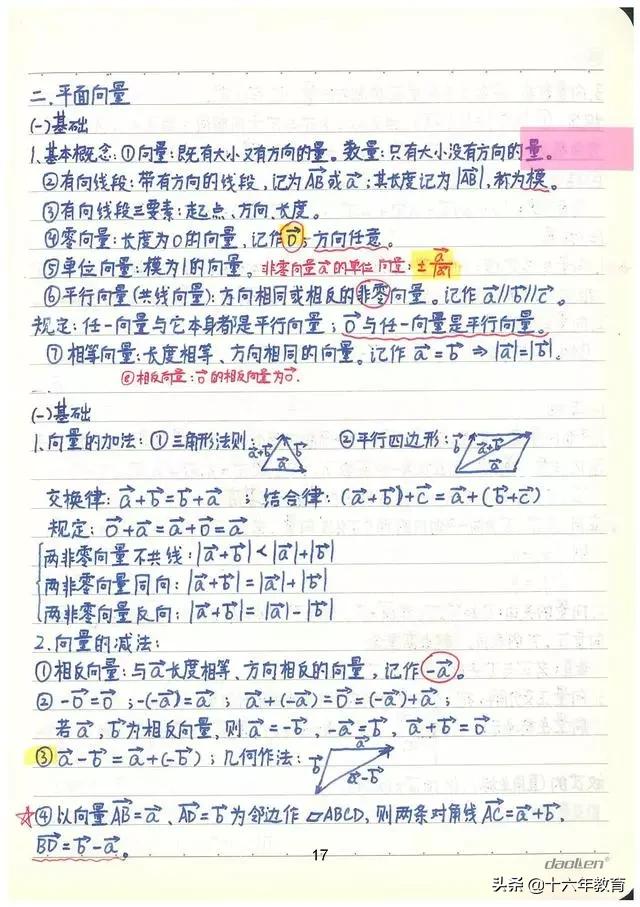 二.平面向量
(一)基础
1.基本概念:①向量:既有大小又有方向的量。数量:只有大小没有方向的量。
②有向线段:带有方向的线段,记为AB→或a→;其长度记为|AB→|,称为模。
③有向线段三要素:起点、方向、长度。
④零向量:长度为0的向量,记作0→;方向任意。
⑤单位向量:模为1的向量。非零向量a→的单位向量:±a→/|a→|
⑥平行向量(共线向量):方向相同或相反的非零向量。记作a→∥b→∥c→。
规定:任一向量与它本身都是平行向量;0→与任一向量是平行向量。
⑦相等向量:长度相等、方向相同的向量。记作a→=b→⇒|a→|=|b→|。
⑧相反向量:0→的相反向量为0→.
(一)基础
1.向量的加法:①三角形法则: a→+b→ b→ a→ ②平行四边形: b→ a→+b→ a→
交换律:a→+b→=b→+a→;结合律:(a→+b→)+c→=a→+(b→+c→)
规定:0→+a→=a→+0→=a→
两非零向量不共线:|a→+b→|<|a→|+|b→|
两非零向量同向:|a→+b→|=|a→|+|b→|
两非零向量反向:|a→+b→|=|a→|-|b→|
2.向量的减法:
①相反向量:与a→长度相等、方向相反的向量,记作-a→。
②-0→=0→;-(-a→)=a→;a→+(-a→)=0→=(-a→)+a→;
若a→,b→为相反向量,则a→=-b→,-a→=b→,a→+b→=0→
③a→-b→=a→+(-b→);几何作法: b→ a→ a→-b→
☆④以向量AB→=a→、AD→=b→为邻边作▱ABCD,则两条对角线AC→=a→+b→,
BD→=b→-a→。
17
daolien®
头条@十六年教育